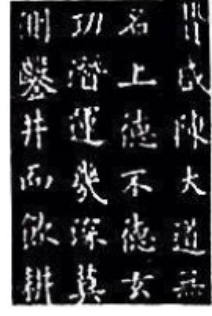 咸陳大道無
名上德不德玄
功潛運幾深莫
測鑿井而飲耕